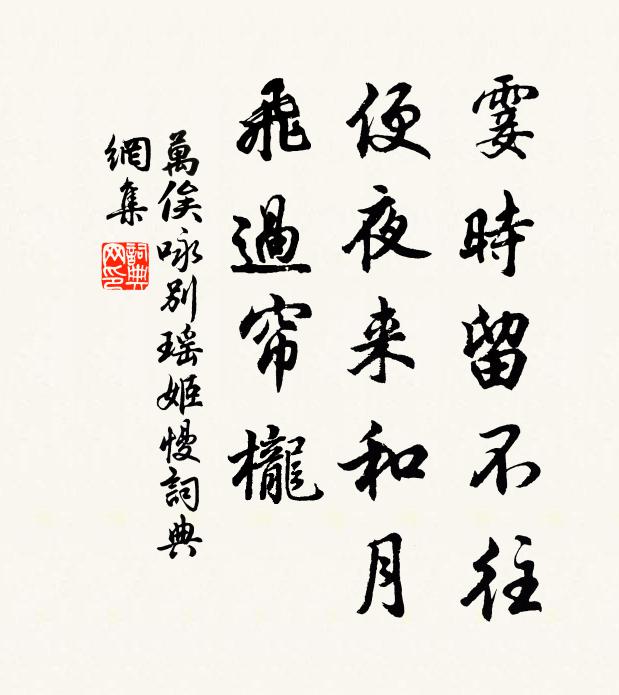 霎時留不往
便夜来和月
飛過帘櫳
萬俟咏别瑶姬慢詞典
網集
詞典
网印